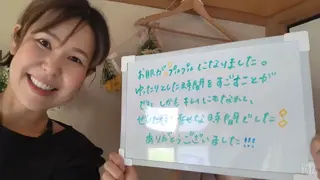 お肌がプルプルになりました。
ゆったりとした時間をすごすことが
でき、しかもキレイになれて、
幸せな時間でした
ありがとうございました!!!